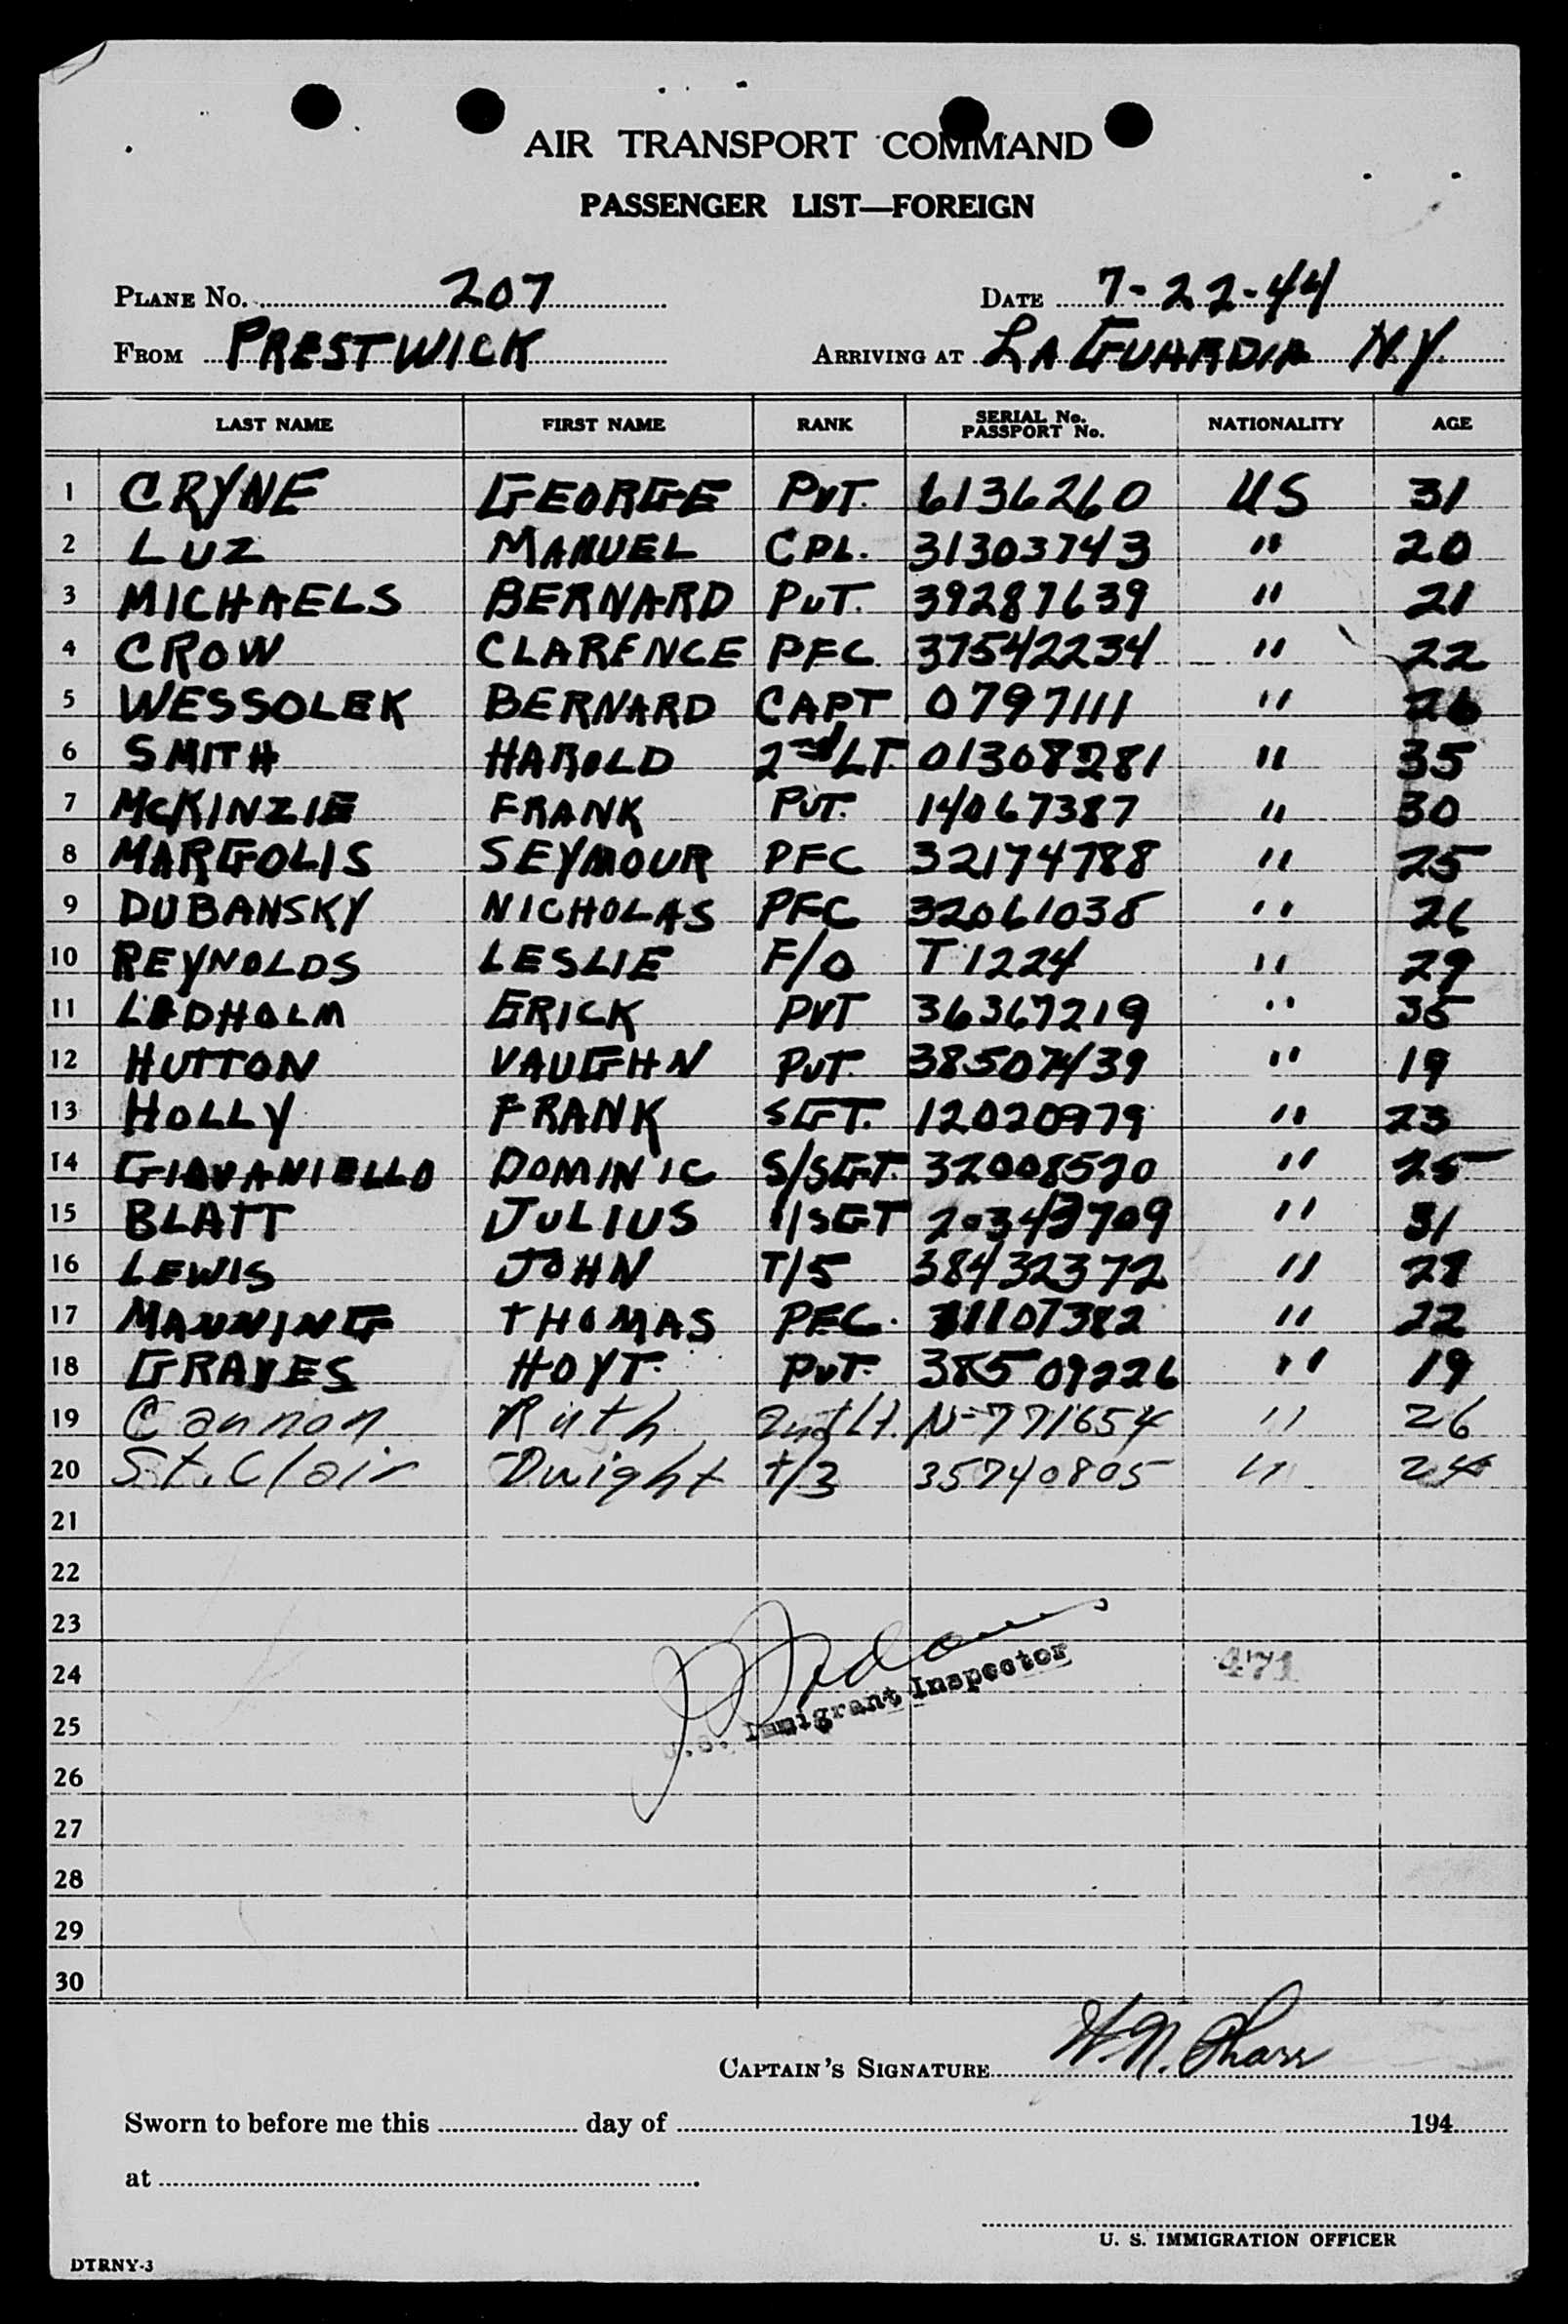 AIR TRANSPORT COMMAND
PASSENGER LIST—FOREIGN
PLANE No. 207 DATE 7-22-44
FROM PRESTWICK ARRIVING AT LA GUARDIA N.Y.
LAST NAME FIRST NAME RANK SERIAL No. PASSPORT No. NATIONALITY AGE
1 CRYNE GEORGE PVT. 6136260 US 31
2 LUZ MANUEL CPL. 31303743 " 20
3 MICHAELS BERNARD PVT. 39287639 " 21
4 CROW CLARENCE PFC 37542234 " 22
5 WESSOLEK BERNARD CAPT 0797111 " 26
6 SMITH HAROLD 2nd LT. 01308281 " 35
7 McKINZIE FRANK PVT. 14067387 " 30
8 MARGOLIS SEYMOUR PFC 32174788 " 25
9 DUBANSKY NICHOLAS PFC 32061038 " 26
10 REYNOLDS LESLIE F/O T1224 " 29
11 LEDHOLM ERICK PVT 36367219 " 35
12 HUTTON VAUGHN PVT. 38507439 " 19
13 HOLLY FRANK SGT. 12020979 " 23
14 GIOVANIELLO DOMINIC S/SGT. 32008520 " 25
15 BLATT JULIUS 1/SGT 20343709 " 31
16 LEWIS JOHN T/5 38432372 " 28
17 MANNING THOMAS PFC. 31107382 " 22
18 GRAVES HOYT. PVT. 38509226 " 19
19 Cannon Ruth 2nd Lt. N-771654 " 26
20 St. Clair Dwight T/3 35740805 " 24
21
22
23
24 471
U.S. Immigrant Inspector
25
26
27
28
29
30
CAPTAIN'S SIGNATURE W.N. Pharr
Sworn to before me this day of 194
at
U. S. IMMIGRATION OFFICER
DTRNY-3